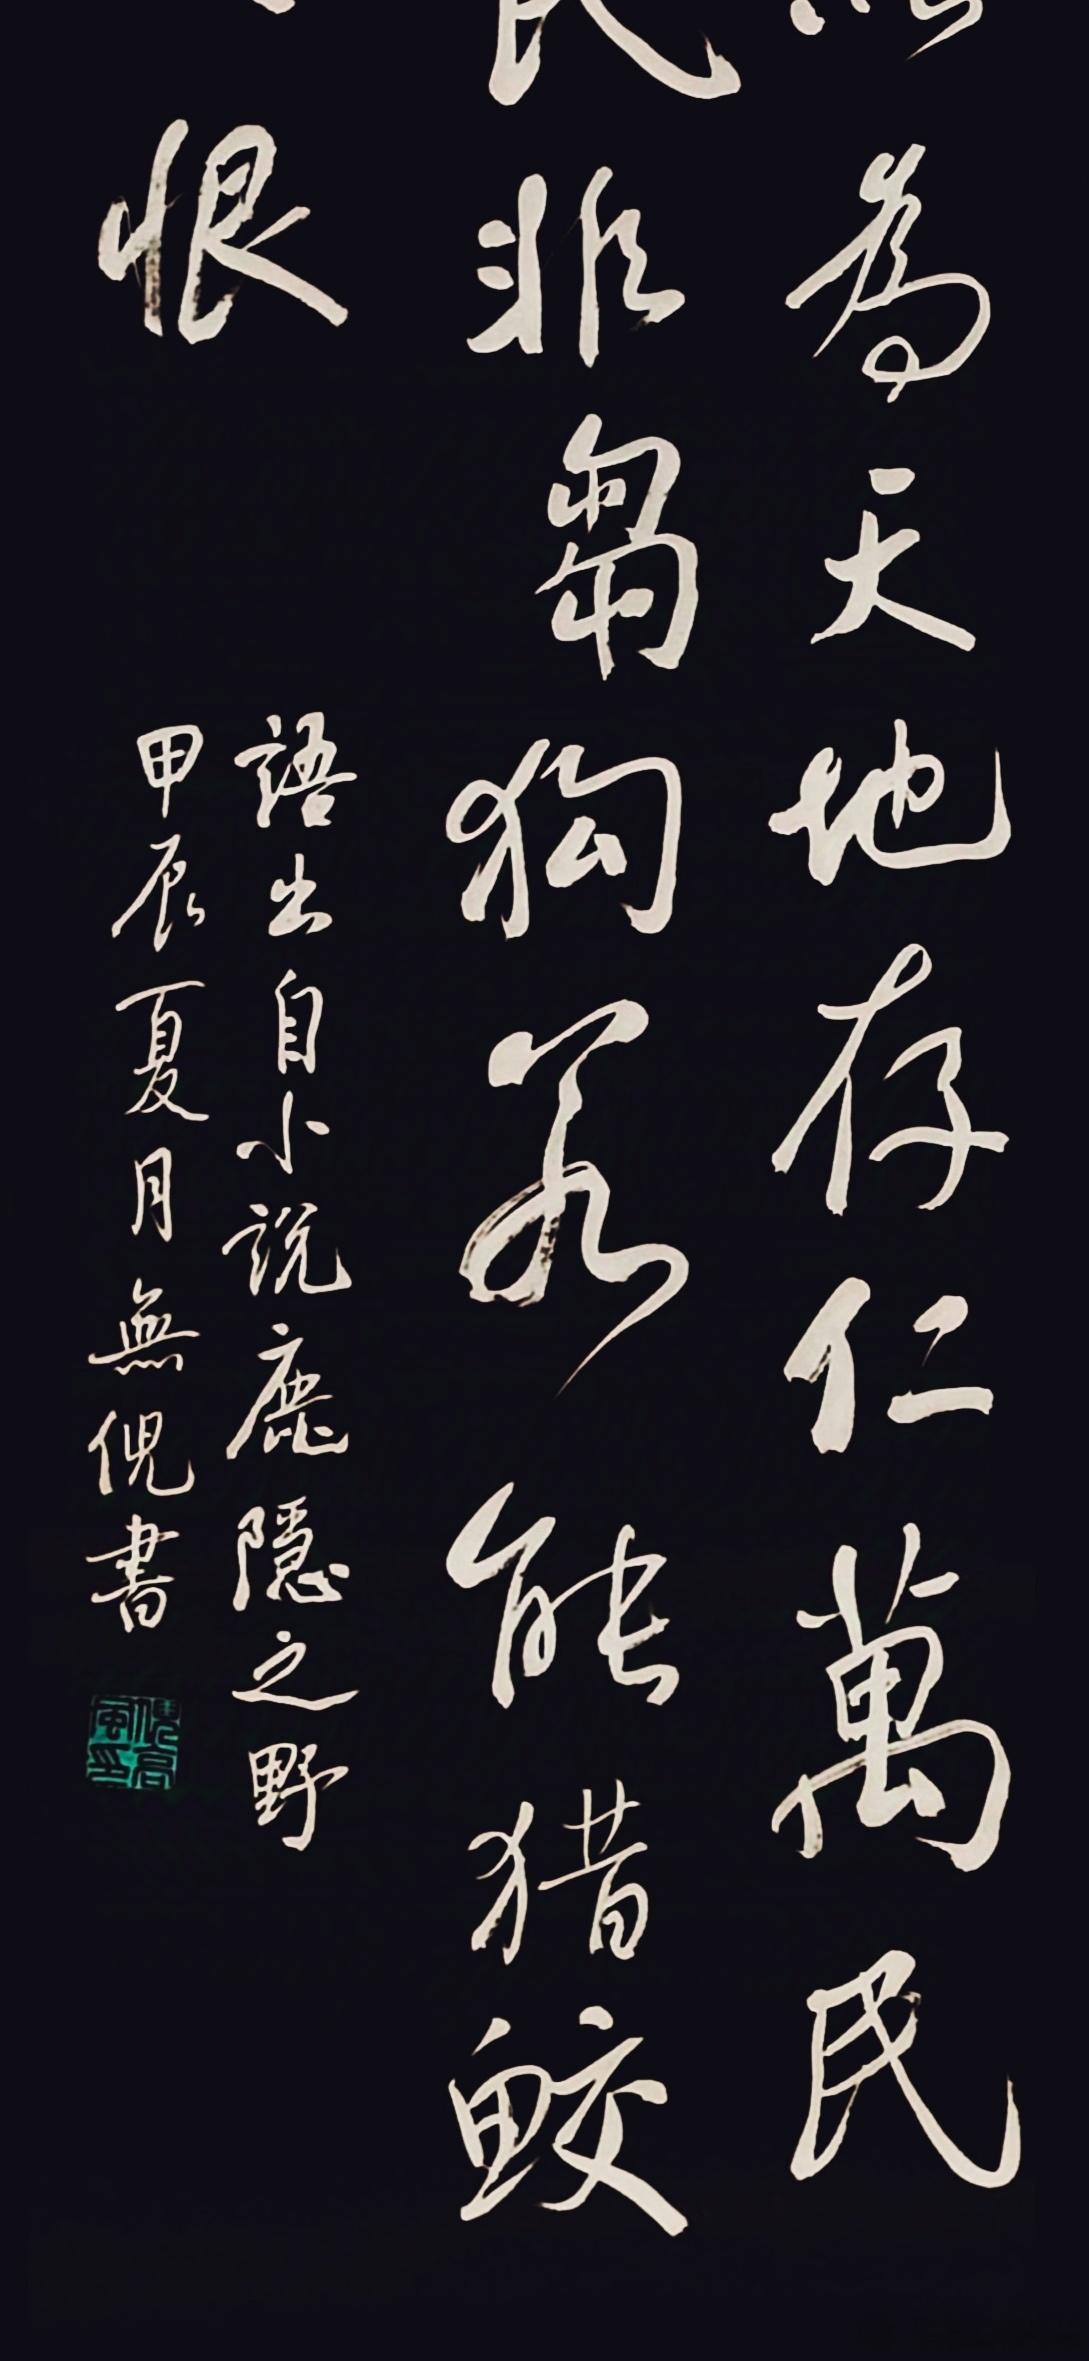 為天地存仁萬民
民非芻狗若能猎鲛
恨
語出自小説鹿隱之野
甲辰夏月無倪書